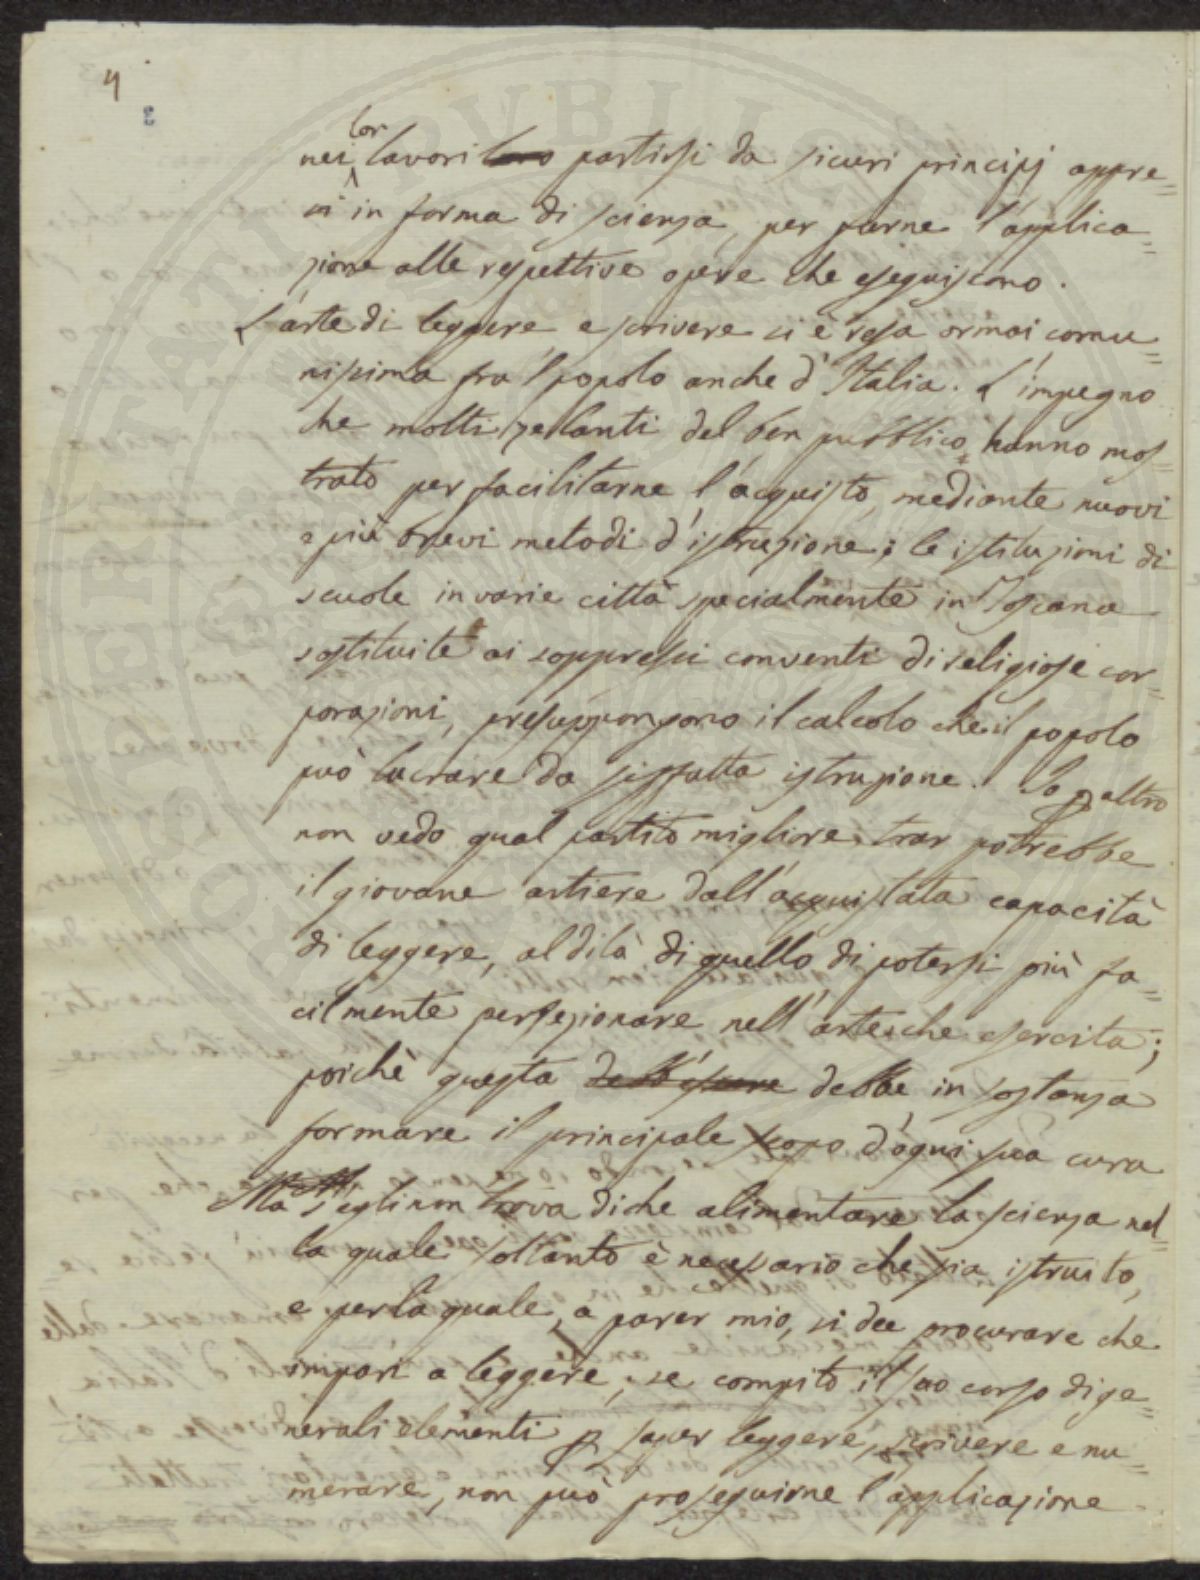 4
nei lor lavori loro partirsi da sicuri principj appre=
si in forma di scienza, per farne l'applica=
zione alle respettive opere che eseguiscono.
L'arte di leggere, e scrivere si è resa ormai comu=
nissima fra 'l popolo anche d'Italia. L'impegno
che molti zelanti del ben pubblico hanno mos=
trato per facilitarne l'acquisto, mediante nuovi
e più brevi metodi d'istruzione; le istituzioni di
scuole in varie città specialmente in Toscana
sostituite ai soppressi conventi di religiose cor=
porazioni, presuppongono il calcolo che il popolo
può lucrare da siffatta istruzione. Io p altro
non vedo qual partito migliore trar potrebbe
il giovane artiere dall'acquistata capacità
di leggere, al di là di quello di potersi più fa=
cilmente perfezionare nell'arte che esercita;
poichè questa debb'essere debbe in sostanza
formare il principale scopo d'ogni sua cura
Ma s'egli non trova di che alimentare la scienza nel=
la quale soltanto è necessario che sia istruito,
e per la quale, a parer mio, si dee procurare che
impari a leggere; se compito il suo corso di ge=
nerali elementi p saper leggere, scrivere e nu=
merare, non può proseguirne l'applicazione